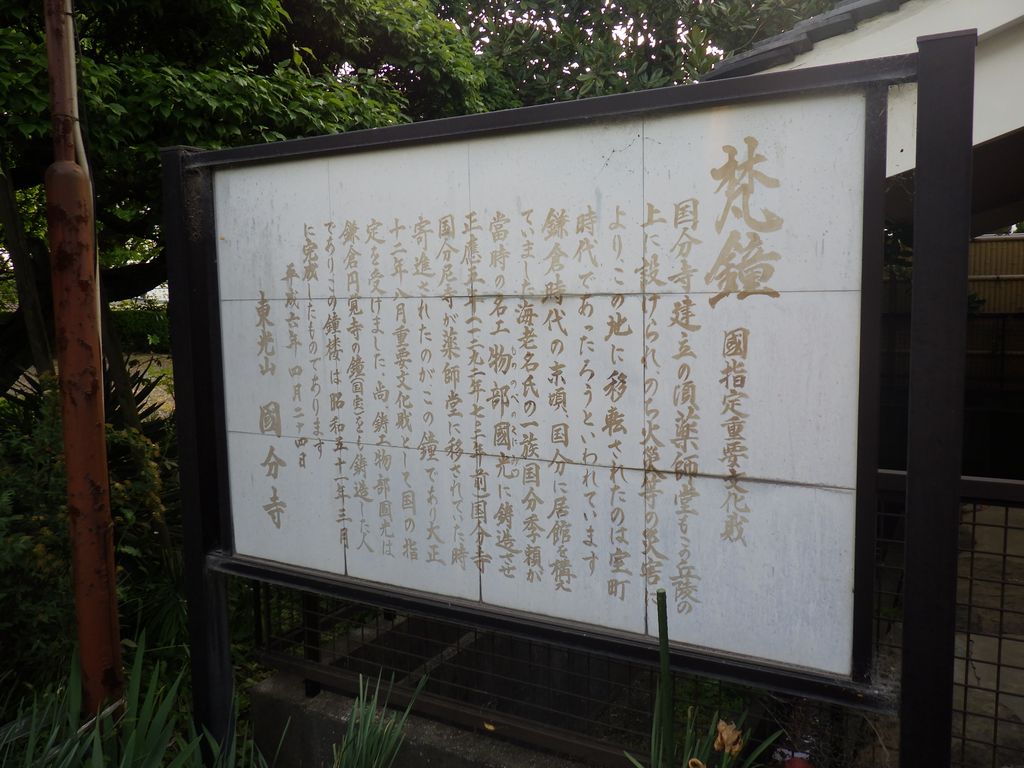 梵鐘
國指定重要文化戝
国分寺建立の頃薬師堂もこの丘陵の
上に設けられ、のち火災等の災害に
よりこの地に移転されたのは室町
時代であったろうといわれています
鎌倉時代の末頃、国分に居館を構え
ていました海老名氏の一族国分季頼が
當時の名工物部國光に鋳造させ
もののべのくにみつ
正應五年(一二九二年七〇二年前)国分寺
国分尼寺が薬師堂に移されていた時
寄進されたのがこの鐘であり大正
十二年八月重要文化戝として国の指
定を受けました、尚鋳工物部國光は
鎌倉円覚寺の鐘(国宝)をも鋳造した人
でありこの鐘楼は昭和五十一年三月
に完成したものであります
平成六年四月二十四日
東光山 國分寺